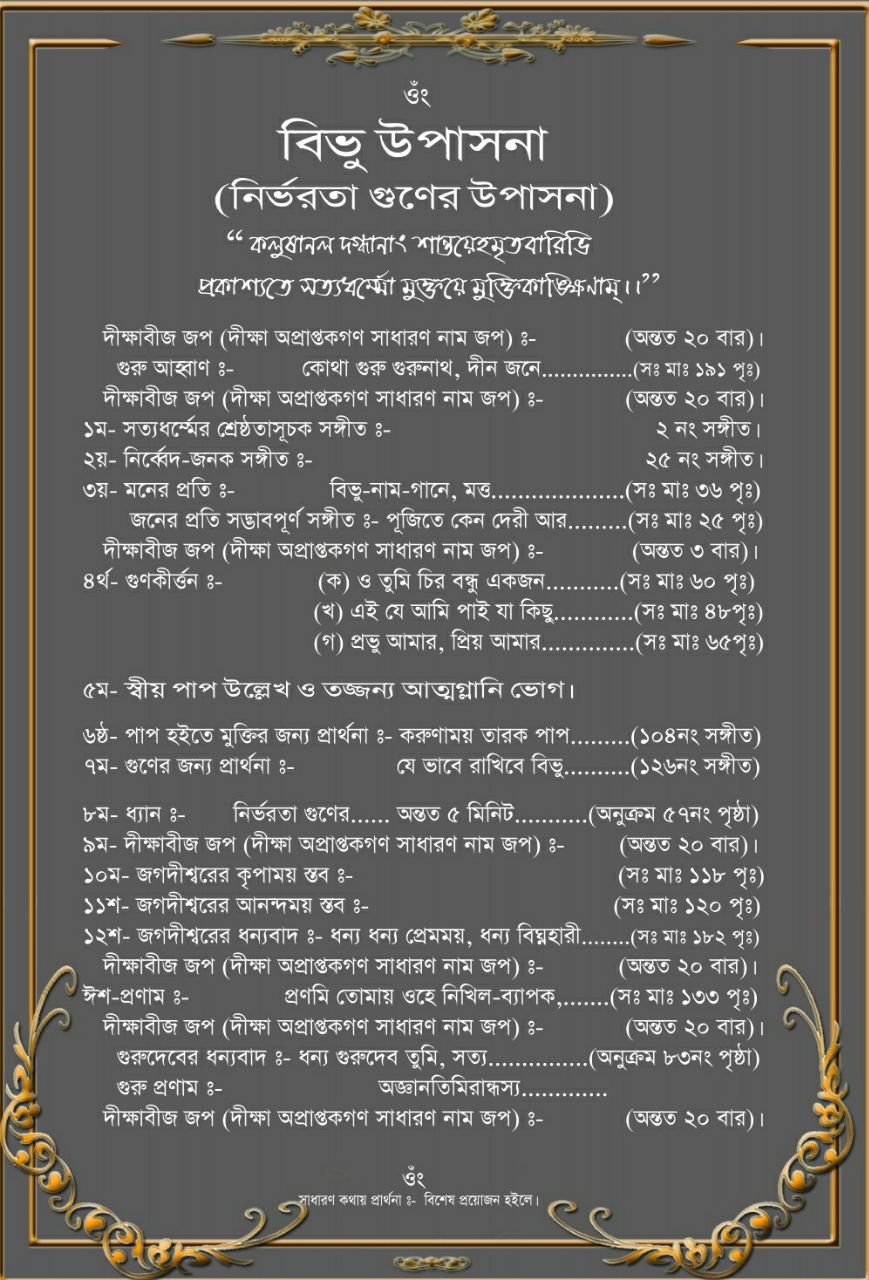 ওঁং
বিভু উপাসনা
(নির্ভরতা গুণের উপাসনা)
“ কলুষানল দগ্ধানাং শান্তয়েহমৃতবারিভি
প্রকাশ্যতে সত্যধর্ম্মো মুক্তয়ে মুক্তিকাঙ্ক্ষিণাম্।।”
দীক্ষাবীজ জপ (দীক্ষা অপ্রাপ্তকগণ সাধারণ নাম জপ) ঃ- (অন্তত ২০ বার)।
গুরু আহ্বাণ ঃ- কোথা গুরু গুরুনাথ, দীন জনে...............(সঃ মাঃ ১৯১ পৃঃ)
দীক্ষাবীজ জপ (দীক্ষা অপ্রাপ্তকগণ সাধারণ নাম জপ) ঃ- (অন্তত ২০ বার)।
১ম- সত্যধর্ম্মের শ্রেষ্ঠতাসূচক সঙ্গীত ঃ- ২ নং সঙ্গীত।
২য়- নির্ব্বেদ-জনক সঙ্গীত ঃ- ২৫ নং সঙ্গীত।
৩য়- মনের প্রতি ঃ- বিভু-নাম-গানে, মত্ত.....................(সঃ মাঃ ৩৬ পৃঃ)
জনের প্রতি সদ্ভাবপূর্ণ সঙ্গীত ঃ- পূজিতে কেন দেরী আর.........(সঃ মাঃ ২৫ পৃঃ)
দীক্ষাবীজ জপ (দীক্ষা অপ্রাপ্তকগণ সাধারণ নাম জপ) ঃ- (অন্তত ৩ বার)।
৪র্থ- গুণকীর্ত্তন ঃ- (ক) ও তুমি চির বন্ধু একজন...........(সঃ মাঃ ৬০ পৃঃ)
(খ) এই যে আমি পাই যা কিছু............(সঃ মাঃ ৪৮পৃঃ)
(গ) প্রভু আমার, প্রিয় আমার..............(সঃ মাঃ ৬৫পৃঃ)
৫ম- স্বীয় পাপ উল্লেখ ও তজ্জন্য আত্মগ্লানি ভোগ।
৬ষ্ঠ- পাপ হইতে মুক্তির জন্য প্রার্থনা ঃ- করুণাময় তারক পাপ.........(১০৪নং সঙ্গীত)
৭ম- গুণের জন্য প্রার্থনা ঃ- যে ভাবে রাখিবে বিভু..........(১২৬নং সঙ্গীত)
৮ম- ধ্যান ঃ- নির্ভরতা গুণের...... অন্তত ৫ মিনিট...........(অনুক্রম ৫৭নং পৃষ্ঠা)
৯ম- দীক্ষাবীজ জপ (দীক্ষা অপ্রাপ্তকগণ সাধারণ নাম জপ) ঃ- (অন্তত ২০ বার)।
১০ম- জগদীশ্বরের কৃপাময় স্তব ঃ- (সঃ মাঃ ১১৮ পৃঃ)
১১শ- জগদীশ্বরের আনন্দময় স্তব ঃ- (সঃ মাঃ ১২০ পৃঃ)
১২শ- জগদীশ্বরের ধন্যবাদ ঃ- ধন্য ধন্য প্রেমময়, ধন্য বিঘ্নহারী........(সঃ মাঃ ১৮২ পৃঃ)
দীক্ষাবীজ জপ (দীক্ষা অপ্রাপ্তকগণ সাধারণ নাম জপ) ঃ- (অন্তত ২০ বার)।
ঈশ-প্রণাম ঃ- প্রণমি তোমায় ওহে নিখিল-ব্যাপক,.......(সঃ মাঃ ১৩৩ পৃঃ)
দীক্ষাবীজ জপ (দীক্ষা অপ্রাপ্তকগণ সাধারণ নাম জপ) ঃ- (অন্তত ২০ বার)।
গুরুদেবের ধন্যবাদ ঃ- ধন্য গুরুদেব তুমি, সত্য................(অনুক্রম ৮৩নং পৃষ্ঠা)
গুরু প্রণাম ঃ- অজ্ঞানতিমিরান্ধস্য..............
দীক্ষাবীজ জপ (দীক্ষা অপ্রাপ্তকগণ সাধারণ নাম জপ) ঃ- (অন্তত ২০ বার)।
ওঁং
সাধারণ কথায় প্রার্থনা ঃ- বিশেষ প্রয়োজন হইলে।